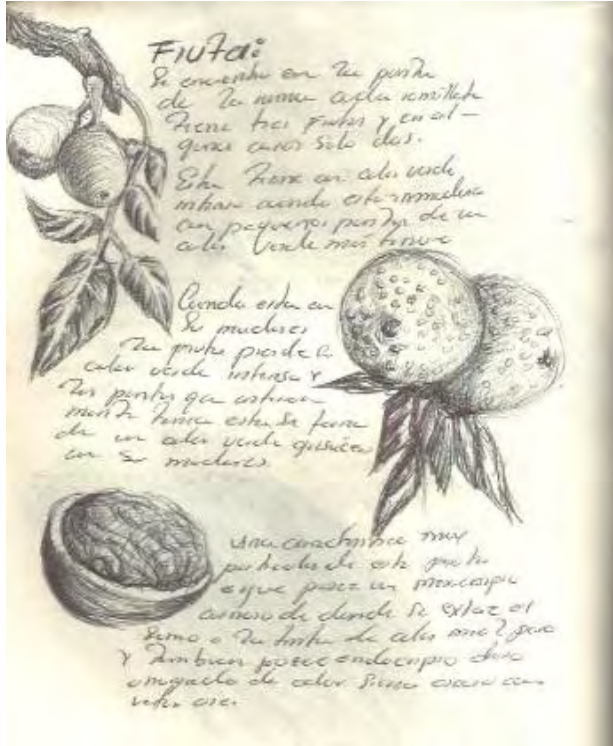 Fruta:
Se encuentra en la punta
de la rama cada ramillete
tiene tres frutos y en al-
gunos casos solo dos.
Esta tiene un color verde
intenso cuando esta inmadura
con pequeños puntos de un
color verde mas tenue
Cuando esta en
su madures
la fruta pierde el
color verde intenso y
los puntos que
tenia esta se torna
de un color verde
en su madures
una caracteristica muy
particular de esta fruta
es que posee un mesocarpio
carnoso de donde se extrae el
sumo o la tinta de color
y tambien posee endocarpio duro
arrugado de color Siena